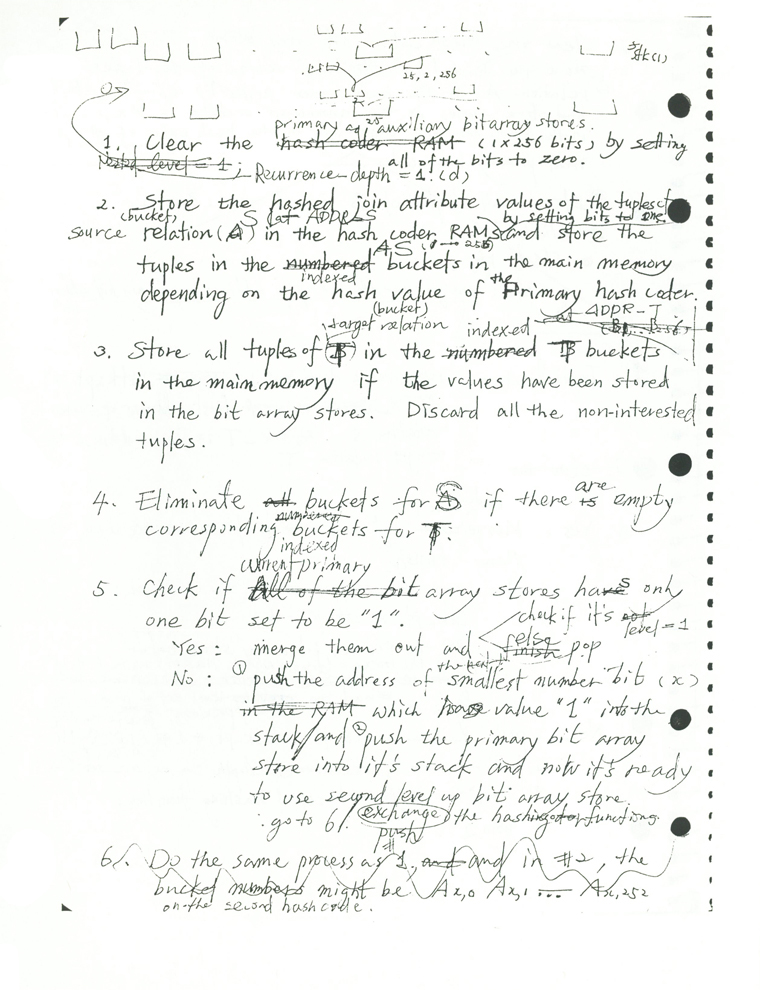 stk(1)
25, 2, 256
25
primary and auxiliary bitarray stores.
1. Clear the hash coder RAM (1x256 bits) by setting
all of the bits to zero.
Nested level = 1; Recurrence depth = 1. (d)
2. Store the hashed join attribute values of the tuples of
(bucket) S (at ADDR-S by setting bits to one
source relation (A) in the hash coder RAM and store the
AS (0 — 255)
tuples in the numbered buckets in the main memory
indexed
depending on the hash value of the Primary hash coder.
(bucket) at ADDR-T
target relation indexed
3. Store all tuples of (B) in the numbered TB buckets
in the main memory if the values have been stored
in the bit array stores. Discard all the non-interested
tuples.
are
4. Eliminate all buckets for S if there is empty
numbered
corresponding buckets for T.
indexed
current primary
5. Check if all of the bit array stores has only
one bit set to be "1".
check if it's not level = 1
Yes: merge them out and finish else pop
the next
No: ① push the address of smallest number bit (x)
in the RAM which has value "1" into the
stack and ② push the primary bit array
store into it's stack and now it's ready
to use second level up bit array store.
go to 6/. exchange the hashing functions.
push
#
6/. Do the same process as 1, and and in #2, the
bucket numbers might be Ax,0 Ax,1 --- Ax,252
on the second hash code.